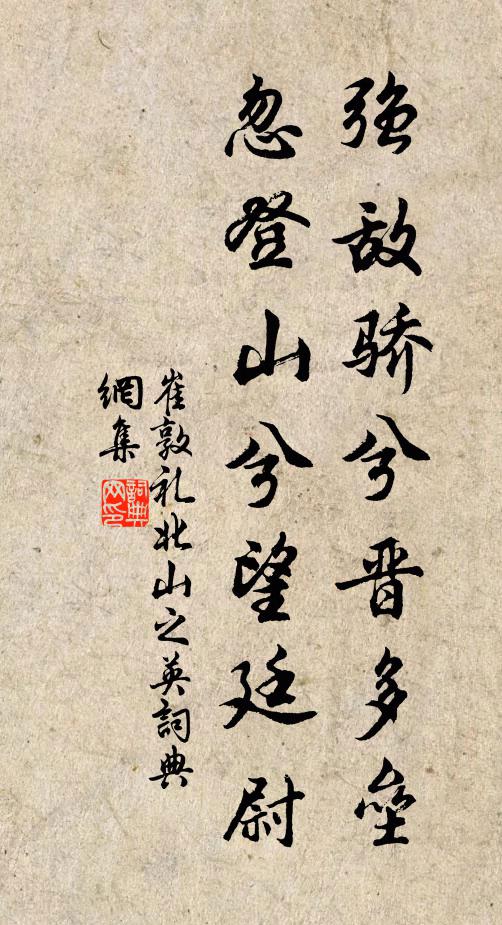 强敌骄兮晋多垒
忽登山兮望廷尉
崔敦礼北山之英詞典
網集
詞典
网印